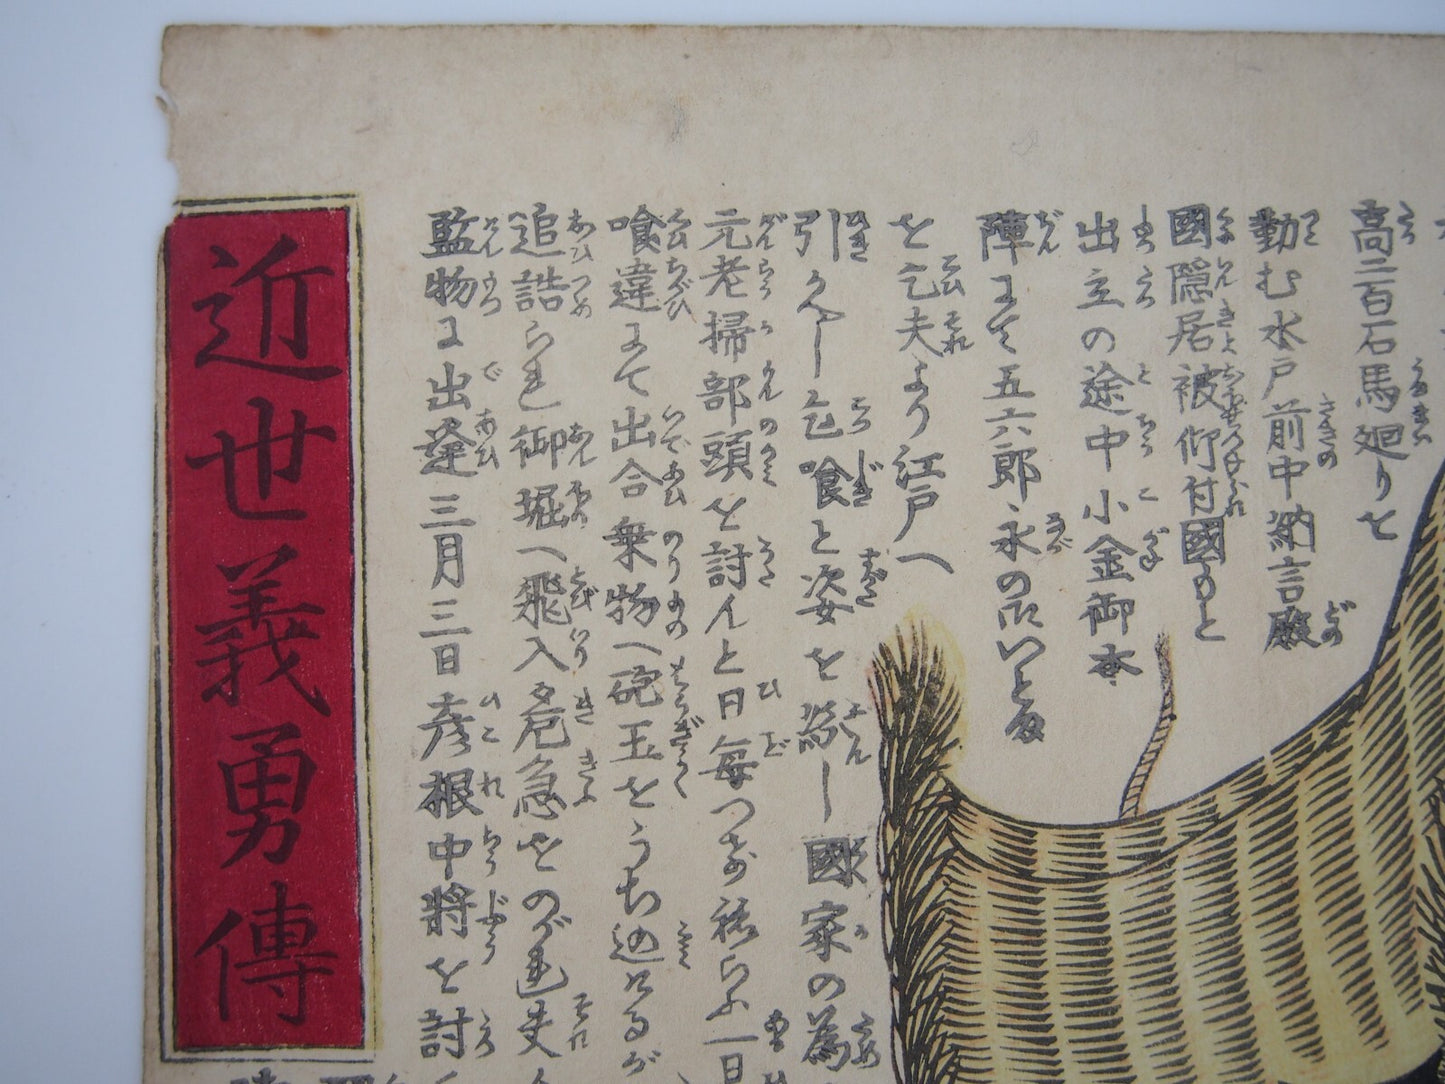 高二百石馬廻りを
勤む水戸前中納言殿
國隠居被仰付國もと
出立の途中小金御本
陣にて五六郎永の御いとま
を乞夫より江戸へ
引かへし乞喰と姿を窶し國家の為
元老掃部頭を討んと日毎つけねらふ一日
喰違にて出合乗物へ砲玉をうち込けるが
追詰られ御堀へ飛入危急をのがれ夫
監物に出逢三月三日彦根中将を討
近世義勇傳